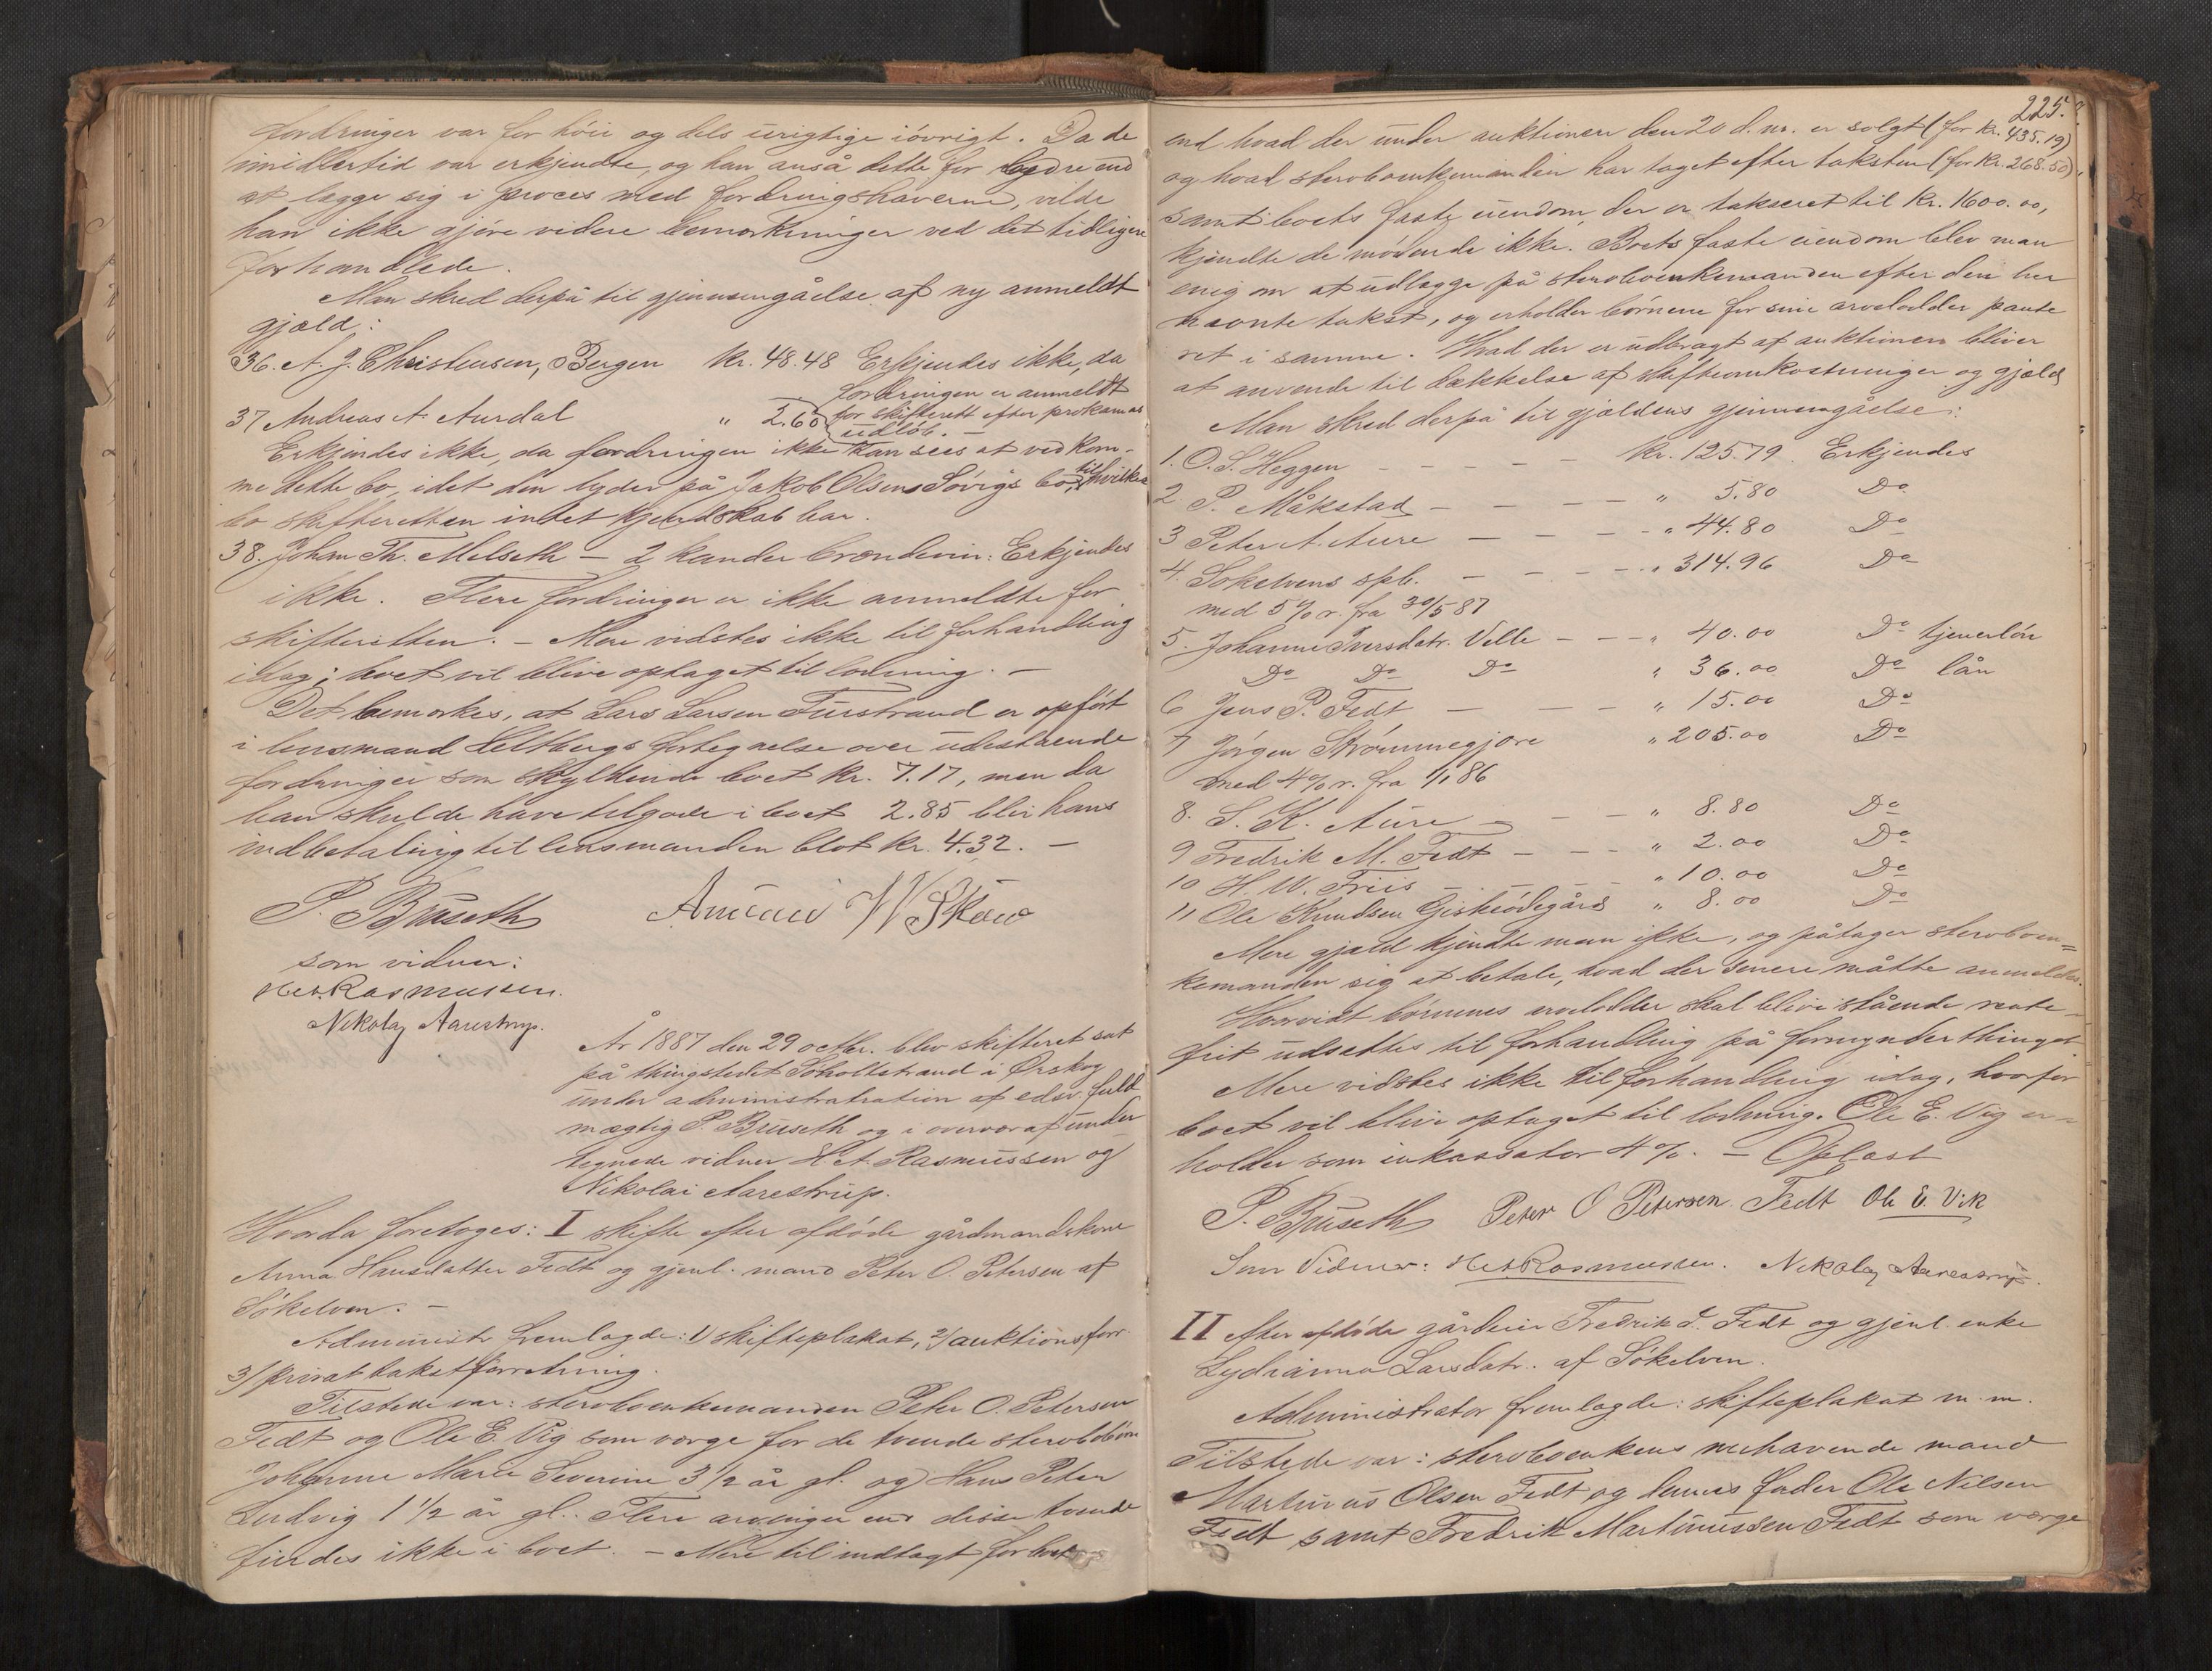 fordringer var for höie og dels urigtige iövrigt. Da de
imidlertid var erkjendte, og han anså dette for bedre end
at lægge sig i proces med fordringshaverne, vilde
han ikke gjöre videre bemærkninger ved det tidligere
forhandlede.
Man skred derpå til gjennemgåelse af ny anmeldt
gjæld:
36. A. J. Christensen, Bergen Kr. 48.48 Erkjendes ikke, da
fordringen er anmeldt
for skifteret efter proklamas
udlöb. -
37 Andreas A. Aurdal " 2.60
Erkjendes ikke, da fordringen ikke kan sees at vedkom-
me dette bo, idet den lyder på Jakob Olsens Sövigs bo, til hvilket
bo skifteretten intet kjendskab har.
38. Johan Th. Melseth - 2 kander brændevin: Erkjendes
ikke. Flere fordringer er ikke anmeldte for
skifteretten. - Mere vidstes ikke til forhandling
idag; boet vil blive optaget til lodning. -
Det bemærkes, at Lars Larsen Furstrand er opfört
i lensmand Heltbergs fortegnelse over udestående
fordringer som skyldende boet Kr. 7.17, men da
han skulde have tilgode i boet 2.85 blir hans
indbetaling til lensmanden blot Kr. 4.32. -
P. Bruseth
som vidner:
H. A. Rasmussen.
Nikolaj Aarestrup.
År 1887 den 29 octbr. blev skifteret sat
på thingstedet Sjöholtstrand i Ørskog
under administratration af edsv. fuld-
mægtig P. Bruseth og i overvær af under
tegnede vidner H. A. Rasmussen og
Nikolai Aarestrup.
Hvorda foretoges: I skifte efter afdöde gårdmandskone
Anna Hansdatter Fedt og gjenl. mand Peter O. Petersen af
Sökelven. -
Administr. fremlagde: 1) skifteplakat, 2) auktionsforr.
3) privat takstforretning.
Tilstede var: stervboenkemanden Peter O. Petersen
Fedt og Ole E. Vig som værge for de tvende stervbobörn
Johanne Marie Severine 3 1/2 år gl. og Hans Peter
Ludvig 1 1/2 år gl.. Flere arvinger end disse tvende
findes ikke i boet. - Mere til indtægt for boet
225.
end hvad der under auktionen den 20 d. m. er solgt (for Kr. 435.19)
og hvad stervboenkemanden har taget efter taksten (for Kr. 268.50),
samt boets faste eiendom, der er takseret til Kr. 1600.00,
kjendte de mödende ikke. Boets faste eiendom blev man
enig om at udlægge på stervboenkemanden efter den her
nævnte takst, og erholder börnene for sine arvelodder pante
ret i samme. Hvad der er udbragt af auktionen bliver
at anvende til dækkelse af skifteomkostninger og gjæld
Man skred derpå til gjældens gjennemgåelse:
1. O. S. Heggen - - - - Kr. 125.79 Erkjendes
2 P. Måkstad - - - - " 5.80 Do
3 Peter A. Aure - - - - " 44.80 Do
4. Sökelvens spb. - - - " 314.96 Do
med 5 % r. fra 30/5 87
5. Johanne Iversdatr. Velle - - - " 40.00 Do tjenerlön
Do Do Do " 36.00 Do lån
6 Jens P. Fedt - - - " 15.00 Do
7 Jörgen Strømmegjære " 205.00 Do
med 4 % r. fra 1/1 86
8. S. K. Aure - - - " 8.80 Do
9 Fredrik M. Fedt - - - " 2.00 Do
10 H. W. Friis - - - " 10.00 Do
11 Ole Knudsen Giskeödegård " 8.00 Do
Mere gjæld kjendte man ikke, og påtager stervboen=
kemanden sig at betale, hvad der senere måtte anmeldes.
Hvorvidt börnenes arvelodder skal blive stående rente-
frit udsættes til forhandling på formynderthinget
Mere vidstes ikke til forhandling idag, hvorfor
boet vil blive optaget til lodning. Ole E. Vig er-
holder som inkassator 4 %. - Oplæst
P. Bruseth Peter O Petersen Fedt Ole E. Vik
Som Vidner: H. A. Rasmussen. Nikolaj Aarestrup.
II efter afdöde gårdeier Fredrik L. Fedt og gjenl. enke
Lydianna Larsdatr. af Sökelven.
Administrator fremlagde: skifteplakat m. m.
Tilstede var: stervboenkens nuhavende mand
Martinus Olsen Fedt og dennes fader Ole Nilsen
Fedt samt Fredrik Martinussen Fedt som værge